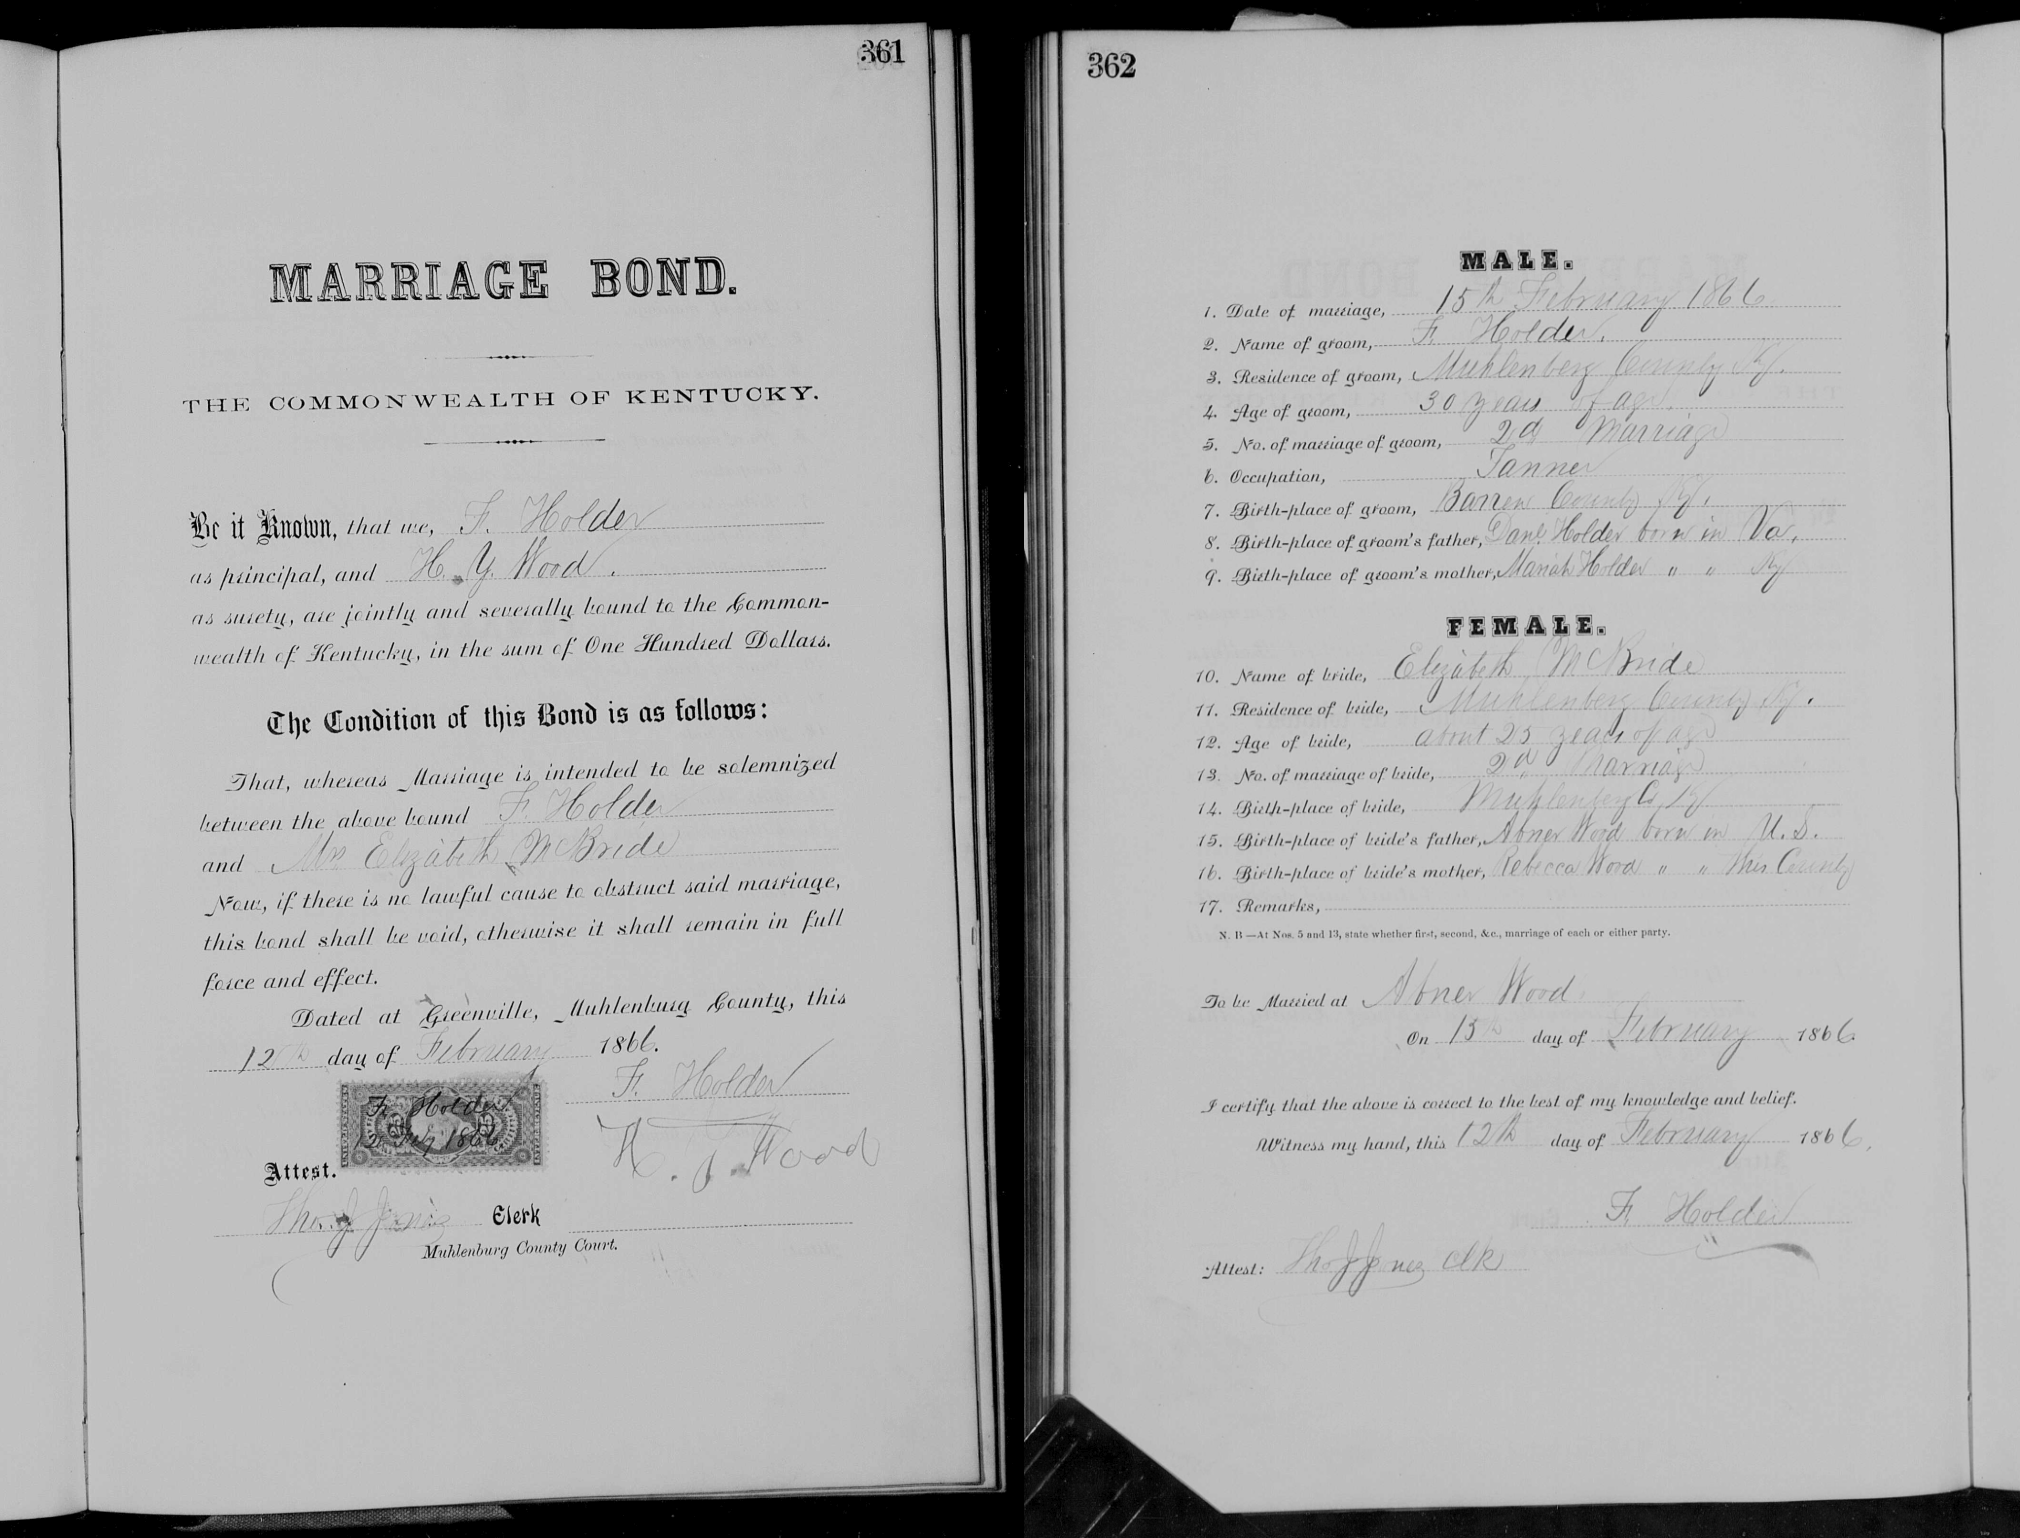 361
MARRIAGE BOND.
THE COMMONWEALTH OF KENTUCKY.
Be it Known, that we, F. Holder
as principal, and H. Y. Wood.
as surety, are jointly and severally bound to the Common-
wealth of Kentucky, in the sum of One Hundred Dollars.
The Condition of this Bond is as follows:
That, whereas Marriage is intended to be solemnized
between the above bound F. Holder
and Mrs Elizabeth McBride
Now, if there is no lawful cause to obstruct said marriage,
this bond shall be void, otherwise it shall remain in full
force and effect.
Dated at Greenville, Muhlenburg County, this
12th day of February 1866.
F. Holder
F. Holder
12 Feby 1866
H. Y. Wood
Attest.
Tho. J. Jones Clerk
Muhlenburg County Court.
362
MALE.
1. Date of marriage, 15th February 1866
2. Name of groom, F. Holder.
3. Residence of groom, Muhlenberg County Ky.
4. Age of groom, 30 years of age.
5. No. of marriage of groom, 2d Marriage
6. Occupation, Tanner
7. Birth-place of groom, Barren County Ky.
8. Birth-place of groom's father, Danl. Holder born in Va.
9. Birth-place of groom's mother, Mariah Holder " " Ky
FEMALE.
10. Name of bride, Elizabeth McBride
11. Residence of bride, Muhlenberg County Ky.
12. Age of bride, about 25 years of age
13. No. of marriage of bride, 2d Marriage
14. Birth-place of bride, Muhlenberg Co. Ky
15. Birth-place of bride's father, Abner Wood born in U.S.
16. Birth-place of bride's mother, Rebecca Wood " " this County
17. Remarks,
N. B—At Nos. 5 and 13, state whether first, second, &c., marriage of each or either party.
To be Married at Abner Wood
On 15th day of February 1866
I certify that the above is correct to the best of my knowledge and belief.
Witness my hand, this 12th day of February 1866.
F. Holder
Attest: Tho J Jones clk